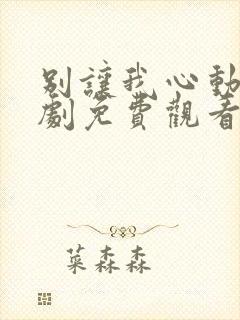 別讓我心動
劇免費觀看
菜森森